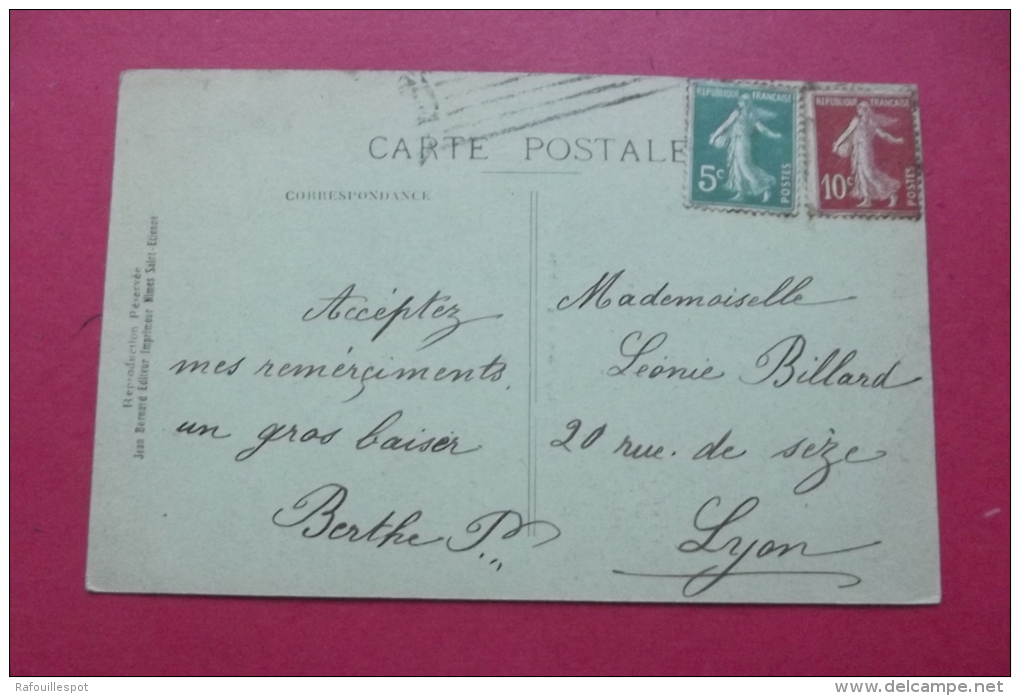 CARTE POSTALE
REPUBLIQUE FRANÇAISE
5c
POSTES
REPUBLIQUE FRANÇAISE
10c
POSTES
CORRESPONDANCE
Reproduction Réservée
Jean Bernard Editeur Imprimeur Nimes Saint-Etienne
Accéptez
mes remérçiments.
un gros baiser
Berthe P...
Mademoiselle
Léonie Billard
20 rue. de sèze
Lyon
Rafouillespot
www.delcampe.net